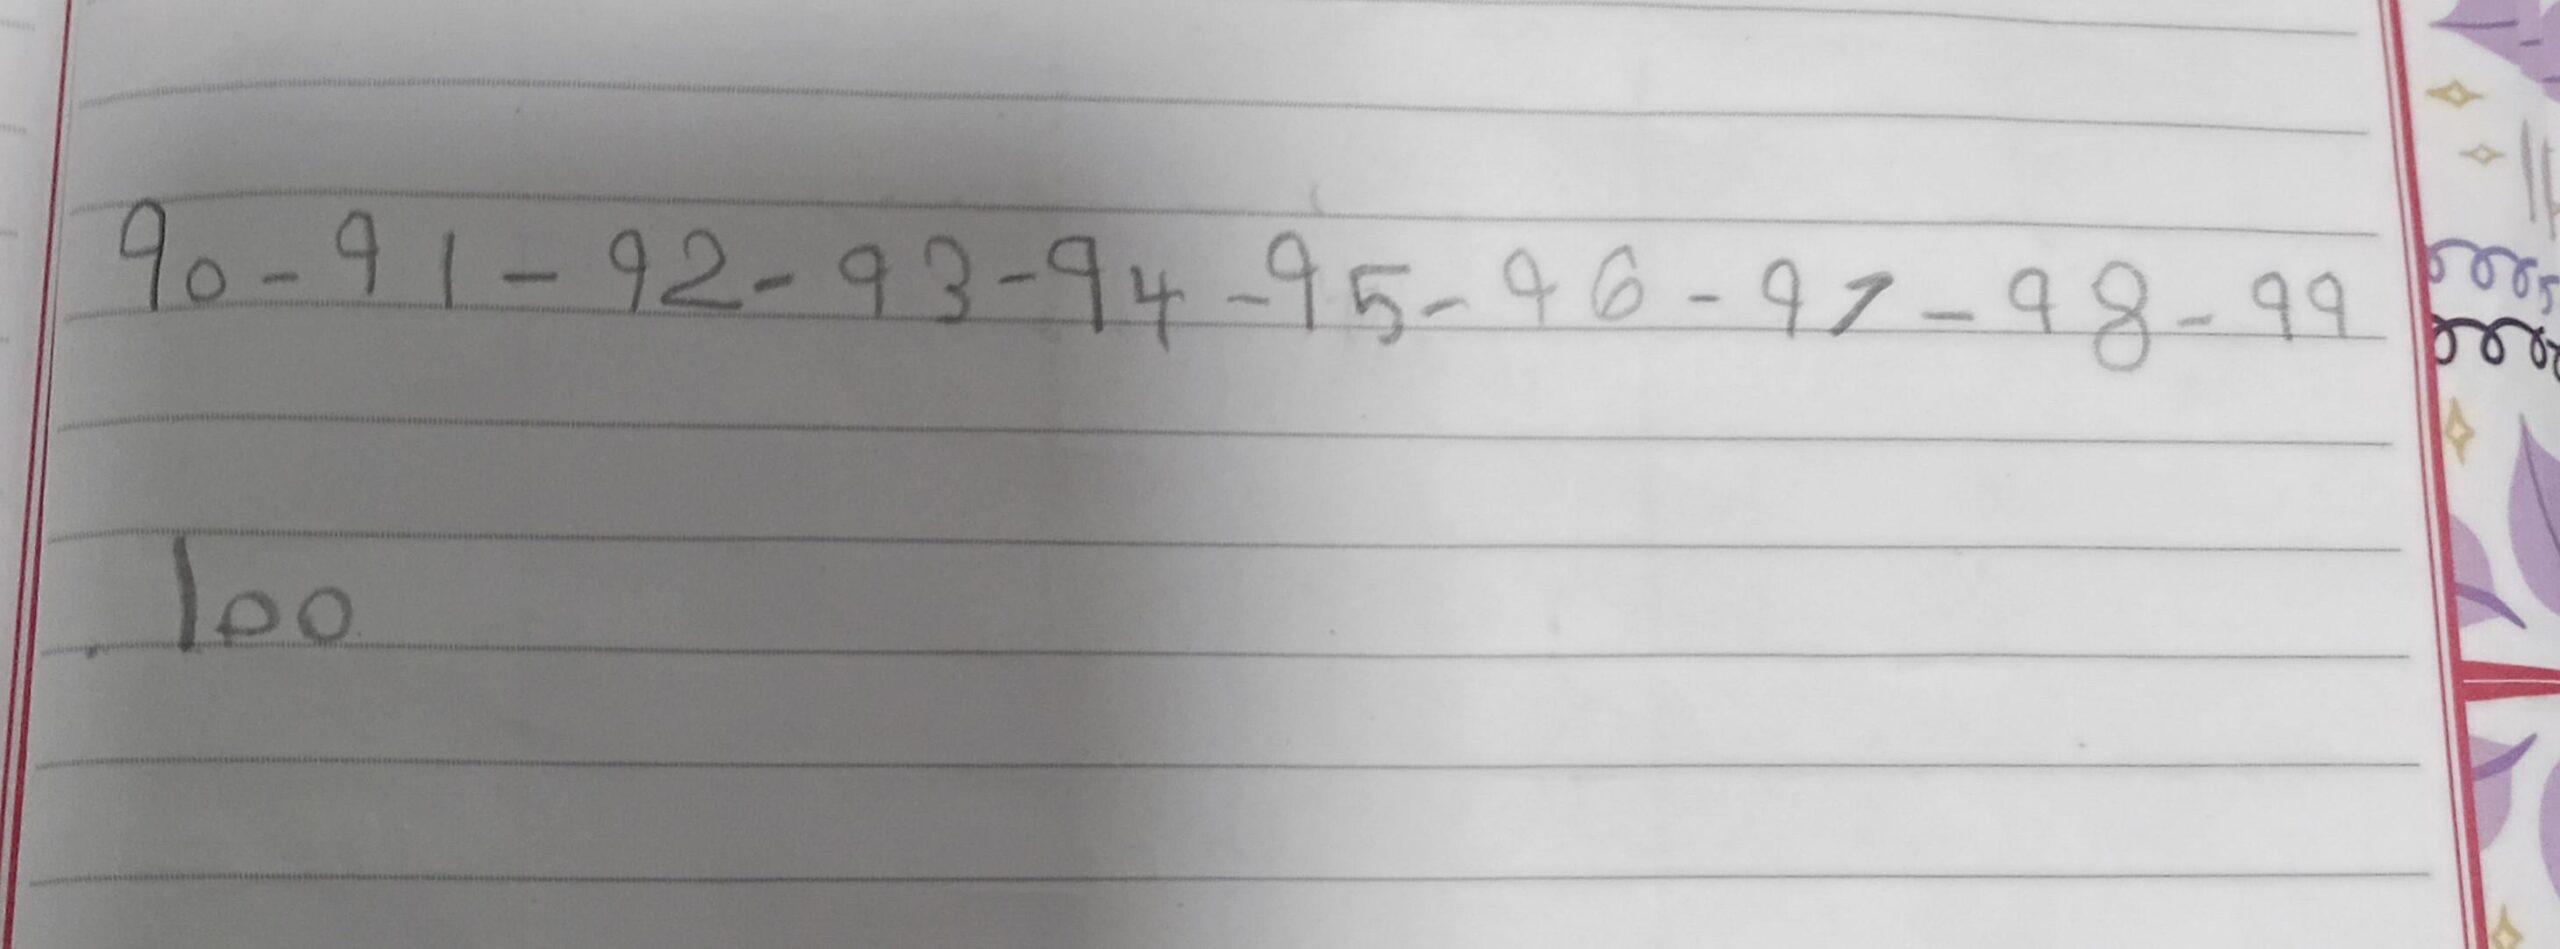 90 - 91 - 92 - 93 - 94 - 95 - 96 - 97 - 98 - 99
100